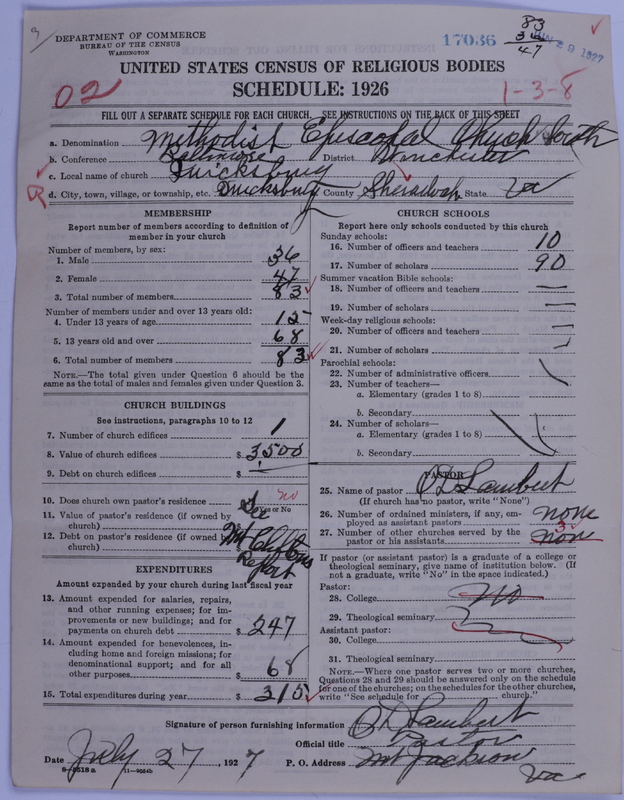 DEPARTMENT OF COMMERCE
BUREAU OF THE CENSUS
WASHINGTON
17036
83
36
47
JUN 29 1927
UNITED STATES CENSUS OF RELIGIOUS BODIES
SCHEDULE: 1926
02
1-3-8
FILL OUT A SEPARATE SCHEDULE FOR EACH CHURCH. SEE INSTRUCTIONS ON THE BACK OF THIS SHEET
a. Denomination Methodist Episcopal Church South
b. Conference Baltimore District Winchester
c. Local name of church Quicksburg
d. City, town, village, or township, etc. Quicksburg County Shenandoah State Va
MEMBERSHIP
Report number of members according to definition of
member in your church
Number of members, by sex:
1. Male 36
2. Female 47
3. Total number of members 83
Number of members under and over 13 years old:
4. Under 13 years of age 15
5. 13 years old and over 68
6. Total number of members 83
NOTE.—The total given under Question 6 should be the
same as the total of males and females given under Question 3.
CHURCH BUILDINGS
See instructions, paragraphs 10 to 12
7. Number of church edifices 1
8. Value of church edifices $ 3500
9. Debt on church edifices $ —
10. Does church own pastor's residence See no
Yes or No
11. Value of pastor's residence (if owned by
church)
12. Debt on pastor's residence (if owned by
church) Mt Cliftons
Report
EXPENDITURES
Amount expended by your church during last fiscal year
13. Amount expended for salaries, repairs,
and other running expenses; for im-
provements or new buildings; and for
payments on church debt $ 247
14. Amount expended for benevolences, in-
cluding home and foreign missions; for
denominational support; and for all
other purposes $ 68
15. Total expenditures during year $ 315
CHURCH SCHOOLS
Report here only schools conducted by this church
Sunday schools:
16. Number of officers and teachers 10
17. Number of scholars 90
Summer vacation Bible schools:
18. Number of officers and teachers —
19. Number of scholars —
Week-day religious schools:
20. Number of officers and teachers —
21. Number of scholars —
Parochial schools:
22. Number of administrative officers
23. Number of teachers—
a. Elementary (grades 1 to 8)
b. Secondary
24. Number of scholars—
a. Elementary (grades 1 to 8)
b. Secondary
PASTOR
25. Name of pastor O L Lambert
(If church has no pastor, write "None")
26. Number of ordained ministers, if any, em-
ployed as assistant pastors none
27. Number of other churches served by the
pastor or his assistants 3 non
If pastor (or assistant pastor) is a graduate of a college or
theological seminary, give name of institution below. (If
not a graduate, write "No" in the space indicated.)
Pastor:
28. College No
29. Theological seminary
Assistant pastor:
30. College
31. Theological seminary
NOTE.—Where one pastor serves two or more churches,
Questions 28 and 29 should be answered only on the schedule
for one of the churches; on the schedules for the other churches,
write "See schedule for church."
Signature of person furnishing information O L Lambert
Official title Pastor
Date July 27, 1927 P. O. Address Mt Jackson
Va
8—5518 a 11—9864b